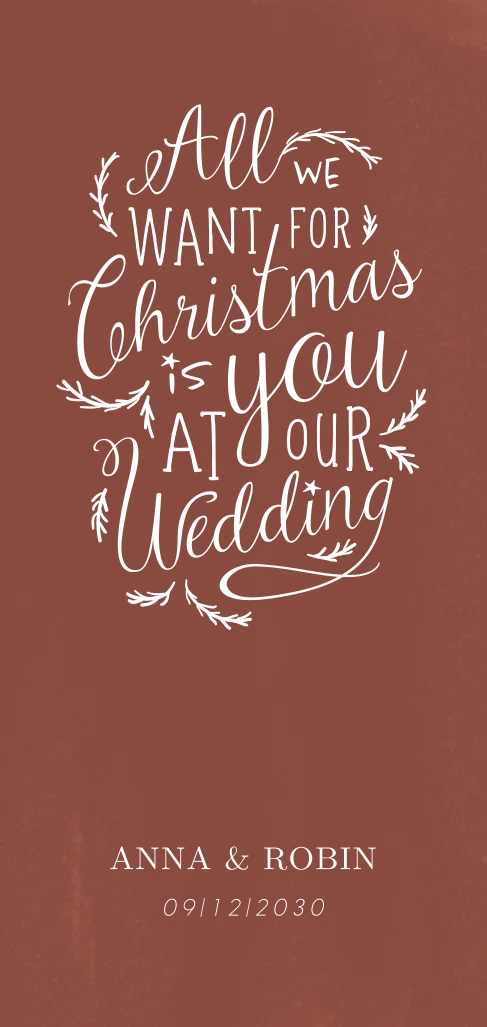 All WE
WANT FOR
Christmas
is you
AT OUR
Wedding
ANNA & ROBIN
09|12|2030